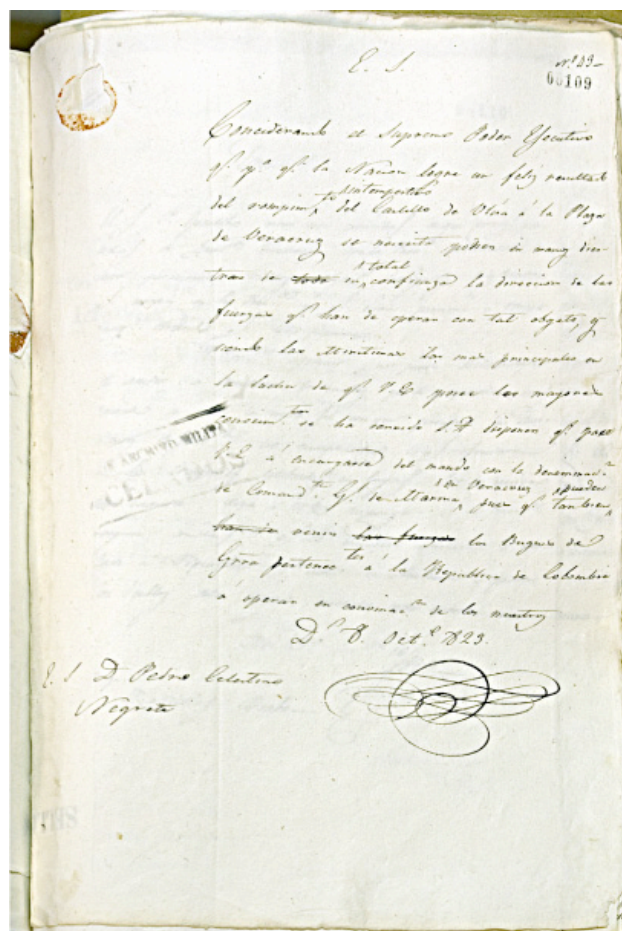 E. S.
Nº 49
00109
Conciderando el Supremo Poder Ejecutivo
qe. pª. qe. la Nacion logre un feliz resultado
del rompimto. intempestivo del Castillo de Ulúa á la Plaza
de Veracruz se necesita poner en manos dies-
tras de todo su total confianza la direccion de las
fuerzas qe. han de operar con tal objeto, y
siendo las Maritimas las mas principales en
la lucha de qe. V.E. posee los mayores
conocimtos. se ha servido S.A. disponer qe. pase
V.E. á encargarse del mando con la denominacn.
de Comandte. Gl. de Marina en Veracruz, pues qe. tambien pueden
han de venir las fuerzas los Buques de
Grra pertenectes. á la Republica de Colombia
á operar en convinacn. de los nuestros
D.s &. Oct.e 8 1823.
E. S. D. Pedro Celestino
Negrete
ARCHIVO MILITAR